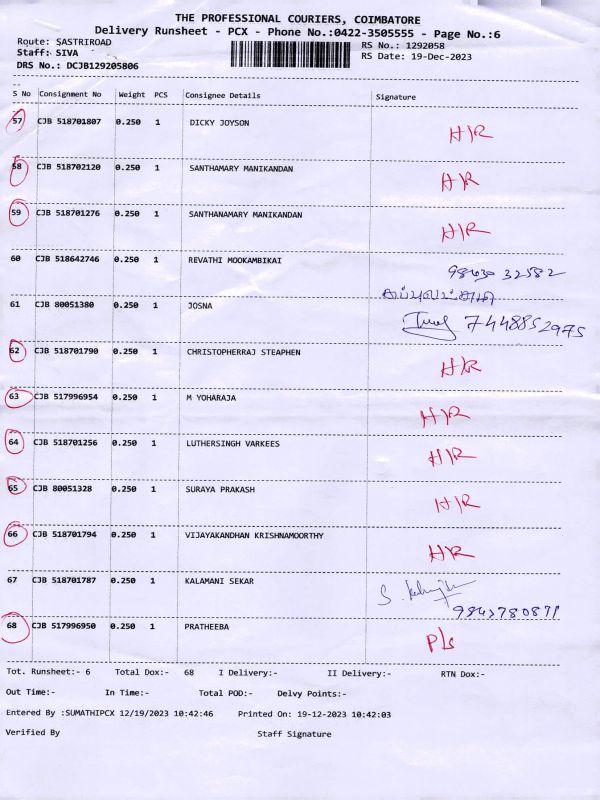 THE PROFESSIONAL COURIERS, COIMBATORE
Delivery Runsheet - PCX - Phone No.:0422-3505555 - Page No.:6
Route: SASTRIROAD RS No.: 1292058
Staff: SIVA RS Date: 19-Dec-2023
DRS No.: DCJB129205806
S No Consignment No Weight PCS Consignee Details Signature
57 CJB 518701807 0.250 1 DICKY JOYSON H/R
58 CJB 518702120 0.250 1 SANTHAMARY MANIKANDAN H/R
59 CJB 518701276 0.250 1 SANTHANAMARY MANIKANDAN H/R
60 CJB 518642746 0.250 1 REVATHI MOOKAMBIKAI
61 CJB 80051380 0.250 1 JOSNA 7448852975
62 CJB 518701790 0.250 1 CHRISTOPHERRAJ STEAPHEN H/R
63 CJB 517996954 0.250 1 M YOHARAJA H/R
64 CJB 518701256 0.250 1 LUTHERSINGH VARKEES H/R
65 CJB 80051328 0.250 1 SURAYA PRAKASH H/R
66 CJB 518701794 0.250 1 VIJAYAKANDHAN KRISHNAMOORTHY H/R
67 CJB 518701787 0.250 1 KALAMANI SEKAR S.
68 CJB 517996950 0.250 1 PRATHEEBA P/s
Tot. Runsheet:- 6 Total Dox:- 68 I Delivery:- II Delivery:- RTN Dox:-
Out Time:- In Time:- Total POD:- Delvy Points:-
Entered By :SUMATHIPCX 12/19/2023 10:42:46 Printed On: 19-12-2023 10:42:03
Verified By Staff Signature